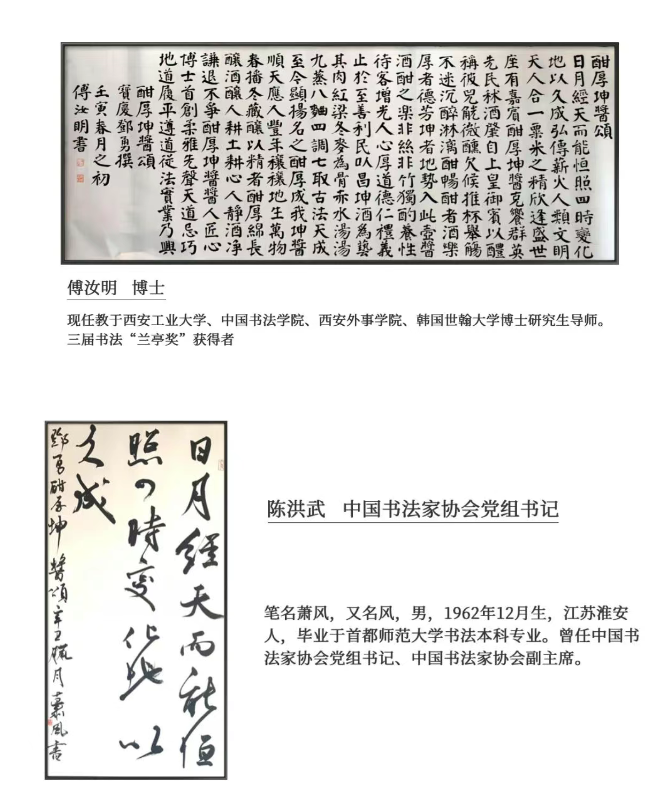 酣厚坤醬頌
日月經天而能恒照四時變化
地以久成弘傳薪火人類文明
天人合一粟米之精欣逢盛世
座有嘉賓酣厚坤醬克饗群英
先民秫酒肇自上皇御賓以醴
稱彼兕觥微醺欠候推杯舉觴
不迷沉醉淋漓酣暢酣者酒樂
厚者德芳坤者地勢入此壺醬
酒酣之樂非絲非竹獨酌養性
待客增光人心厚道德仁禮義
止於至善利民以昌坤酒為藝
其肉紅粱冬麥為骨赤水湯湯
九蒸八麯四調七取古法天成
至今顯揚名之酣厚成我坤醬
順天應人豐年穰穰地生萬物
春播冬藏釀以精者酣厚綿長
釀酒釀人耕土耕心人靜酒淨
謙退不爭酣厚坤醬醬人匠心
博士首創柔雅先聲天道忌巧
地道履平遵道從法實業乃興
酣厚坤醬頌
寶慶鄧勇撰
壬寅春月之初
傅汝明書
傅汝明 博士
现任教于西安工业大学、中国书法学院、西安外事学院、韩国世翰大学博士研究生导师。
三届书法“兰亭奖”获得者
日月經天而能恒
照四時變化地以
久成
鄧勇酣厚坤醬頌辛丑月蕭風書
陈洪武 中国书法家协会党组书记
笔名萧风，又名风，男，1962年12月生，江苏淮安
人，毕业于首都师范大学书法本科专业。曾任中国书
法家协会党组书记、中国书法家协会副主席。